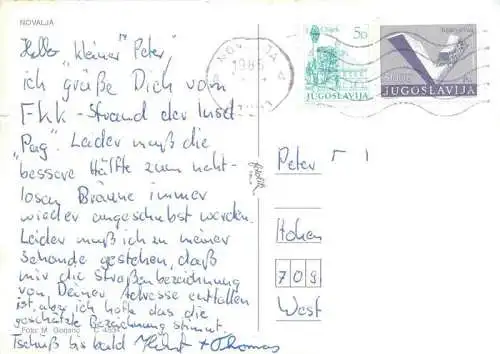 NOVALJA
Hallo "kleiner" Peter,
ich grüße Dich vom
FKK-Strand der Insel
"Pag". Leider muß die
bessere Hälfte zum naht-
losen Bräune immer
wieder angeschubst werden.
Leider muß ich zu meiner
Schande gestehen, daß
mir die Straßenbezeichnung
von Deiner Adresse entfallen
ist, aber ich hoffe das die
geschätzte Bezeichnung stimmt.
Tschüß bis bald + Thomas
Foto: M. C 4534
NOVALJA
1986
Osijek 50
JUGOSLAVIJA
JUGOSLAVIJA
Peter
Hohen
709
West